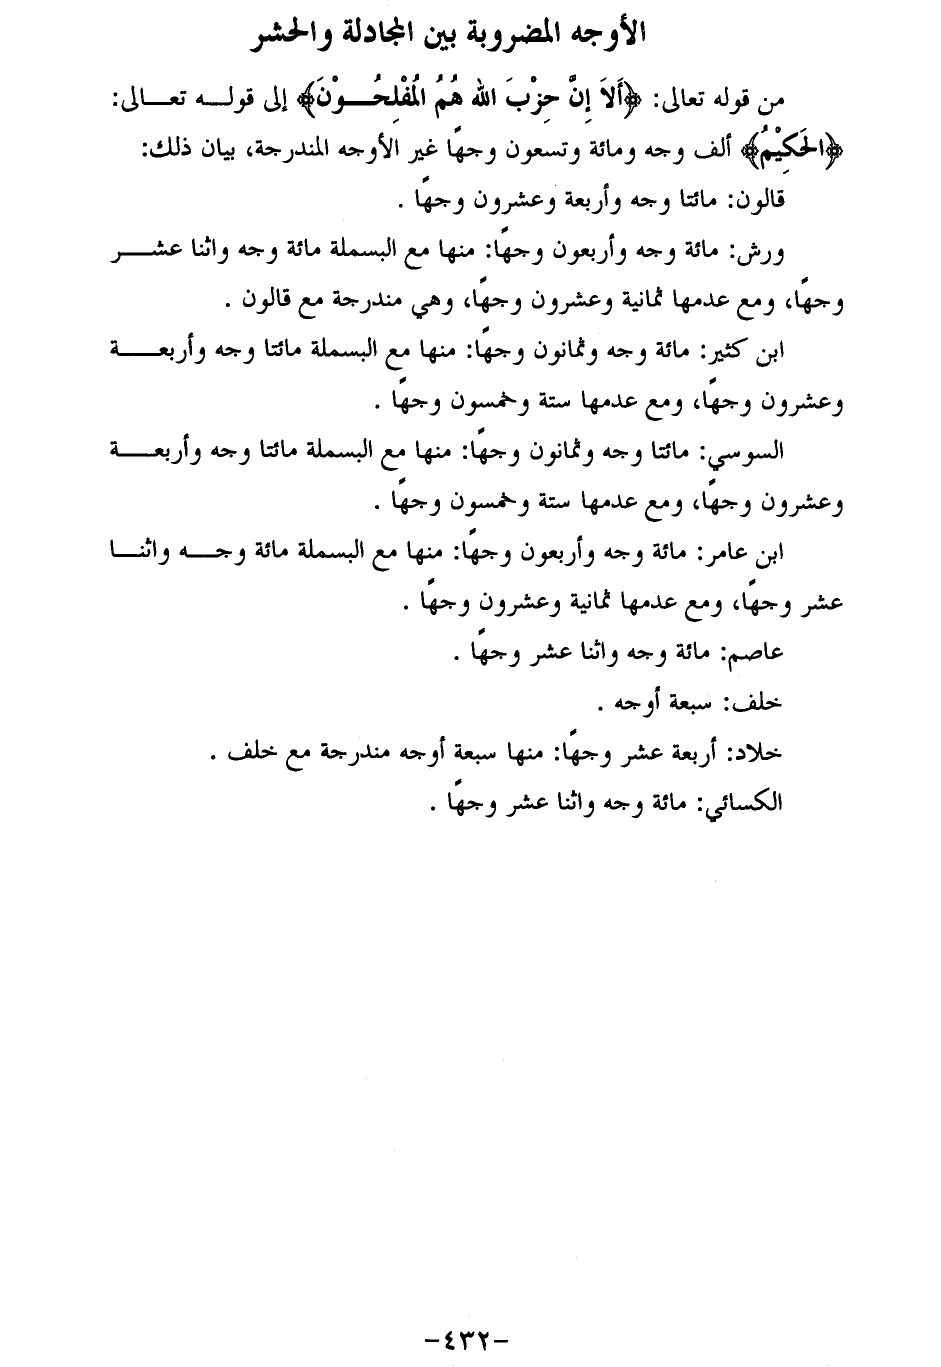 الأوجه المضروبة بين المجادلة والحشر
من قوله تعالى: ﴿أَلاَ إِنَّ حِزْبَ الله هُمُ الُمُفْلِحُــوْنَ﴾ إلى قولــه تعــالى:
﴿الحَكِيْمُ﴾ ألف وجه ومائة وتسعون وجهًا غير الأوجه المندرجة، بيان ذلك:
قالون: مائتا وجه وأربعة وعشرون وجهًا .
ورش: مائة وجه وأربعون وجهًا: منها مع البسملة مائة وجه واثنا عشــر
وجهًا، ومع عدمها ثمانية وعشرون وجهًا، وهي مندرجة مع قالون .
ابن كثير: مائة وجه وثمانون وجهًا: منها مع البسملة مائتا وجه وأربعــة
وعشرون وجهًا، ومع عدمها ستة وخمسون وجهًا .
السوسي: مائتا وجه وثمانون وجهًا: منها مع البسملة مائتا وجه وأربعــة
وعشرون وجهًا، ومع عدمها ستة وخمسون وجهًا .
ابن عامر: مائة وجه وأربعون وجهًا: منها مع البسملة مائة وجــه واثنــا
عشر وجهًا، ومع عدمها ثمانية وعشرون وجهًا .
عاصم: مائة وجه واثنا عشر وجهًا .
خلف: سبعة أوجه .
خلاد: أربعة عشر وجهًا: منها سبعة أوجه مندرجة مع خلف .
الكسائي: مائة وجه واثنا عشر وجهًا .
-٤٣٢-